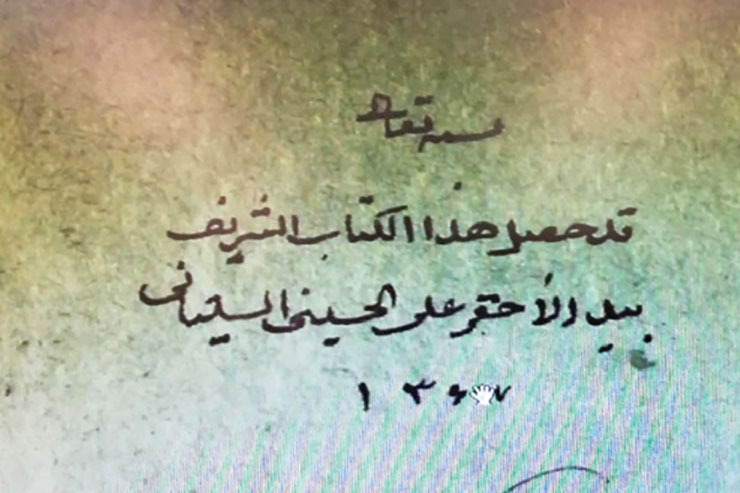 بسمه تعالى
قد حصل هذا الكتاب الشريف
بيد الأحقر علي الحسيني السيستاني
١٣٦٧